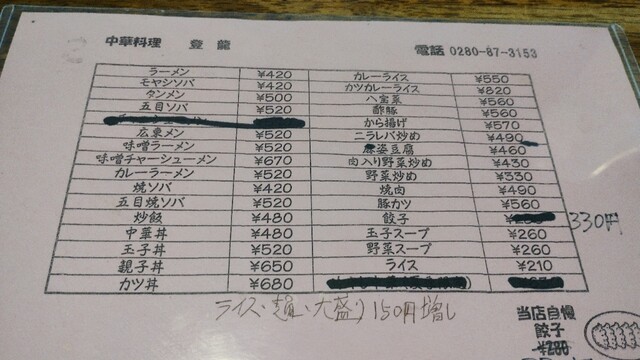 中華料理 登龍
電話 0280-87-3153
ラーメン ¥420
モヤシソバ ¥420
タンメン ¥500
五目ソバ ¥520
広東メン ¥520
味噌ラーメン ¥520
味噌チャーシューメン ¥670
カレーラーメン ¥520
焼ソバ ¥420
五目焼ソバ ¥520
炒飯 ¥480
中華丼 ¥480
玉子丼 ¥520
親子丼 ¥650
カツ丼 ¥680
カレーライス ¥550
カツカレーライス ¥820
八宝菜 ¥560
酢豚 ¥560
から揚げ ¥570
ニラレバ炒め ¥490
麻婆豆腐 ¥460
肉入り野菜炒め ¥430
野菜炒め ¥330
焼肉 ¥490
豚カツ ¥560
餃子 330円
玉子スープ ¥260
野菜スープ ¥260
ライス ¥210
ライス・麺・大盛り150円増し
当店自慢
餃子
¥280